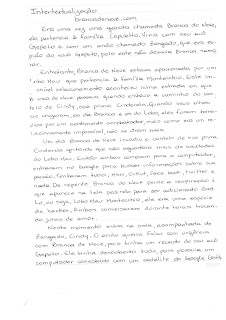 Intertextualização
brancadeneve.com
Era uma vez uma garota chamada Branca de Neve,
ela pertencia à família Capuletto, vivia com seu avô
Gepeto e com um anão chamado Zangado, que era es-
pião do vovô Gepeto, pois este não deixava Branca namo-
rar.
Entretanto, Branca de Neve estava apaixonada por um
Lobo Mau que pertencia à família Montecchio. Este
relacionamento aconteceu numa estrada em que
Branca de Neve passava, quando estava a caminho da ca-
sa de Cindy, sua prima Cinderela. Quando seus olhos
se cruzaram, os de Branca e os do Lobo, eles foram toma-
dos por um sentimento arrebatador, mas como era um re-
lacionamento impossível, não se viram mais.
Um dia Branca de Neve invadiu o castelo de sua prima
Cinderela aflita que não aguentava mais de saudades
do Lobo Mau. Então ambas correram para o computador,
entraram no Google para buscar informações sobre seu
paixão. Tentaram tudo, msn, Orkut, Face book, twitter e
nada. De repente Branca de Neve perde a respiração e
que aparece na tela pedido para ser adicionado Edad
Lo, ou seja, Lobo Mau Montecchio, ele era uma espécie
de hacker. Ambos conversaram durante horas trocan-
do juras de amor.
Neste momento entra na sala, acompanhado de
Zangado, Cindy. O anão queria falar com urgência
com Branca de Neve, pois tinha um recado do seu avô
Gepeto. Ele tinha descoberto tudo, pois possuía um
computador conectado com um satélite do Google Earth